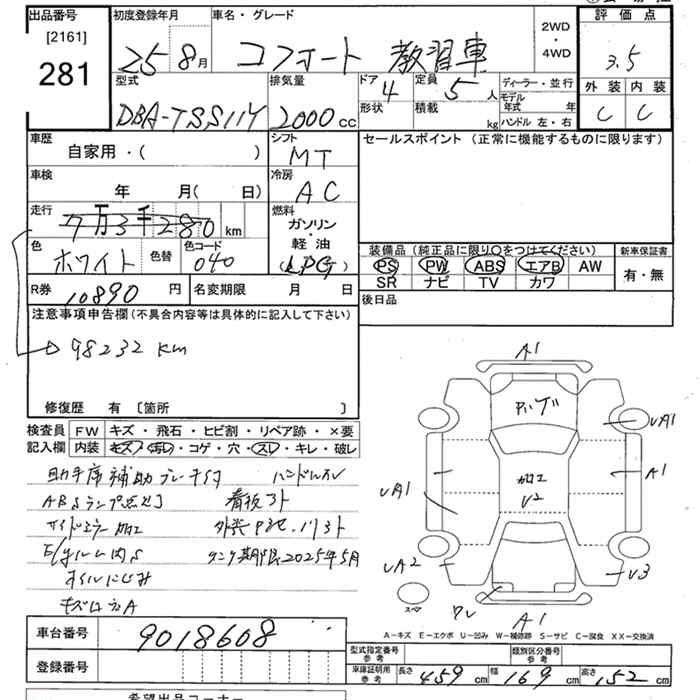 出品番号
[2161]
281
初度登録年月
25 8月
車名・グレード
コンフォート 教習車
2WD
・
4WD
評価点
3.5
外装 内装
C C
型式
DBA-TSS11Y
排気量
2000cc
ドア
4
形状
定員
5人
積載
kg
ディーラー・並行
モデル年式 年
ハンドル 左・右
車歴
自家用・( )
シフト
MT
セールスポイント (正常に機能するものに限ります)
車検
年 月( 日)
冷房
AC
走行
7万3千280 km
燃料
ガソリン
・
軽油
(LPG)
色
ホワイト
色替
色コード
040
装備品 (純正品に限り○をつけてください)
PS PW ABS エアB AW
SR ナビ TV カワ
新車保証書
有・無
R券
10890円
名変期限 月 日
後日品
注意事項申告欄 (不具合内容等は具体的に記入して下さい)
98232 km
修復歴 有 〔箇所 〕
検査員
記入欄
FW キズ・飛石・ヒビ割・リペア跡・×要
内装 キズ・汚レ・コゲ・穴・スレ・キレ・破レ
助手席補助ブレーキ付 ハンドルスレ
ABSランプ点灯 看板アト
サイドミラー加工
タンク期限2025年5月
オイルにじみ
A1
UA1
A1
UA1
加工
U2
UA2
U3
スペア
ワレ
A1
A-キズ E-エクボ U-凹み W-補修跡 S-サビ C-腐食 XX-交換済
車台番号
9018608
登録番号
型式指定番号
参考
類別区分番号
参考
車庫証明用
参考
長さ 459cm 幅 169cm 高さ 152cm
希望出品コーナー